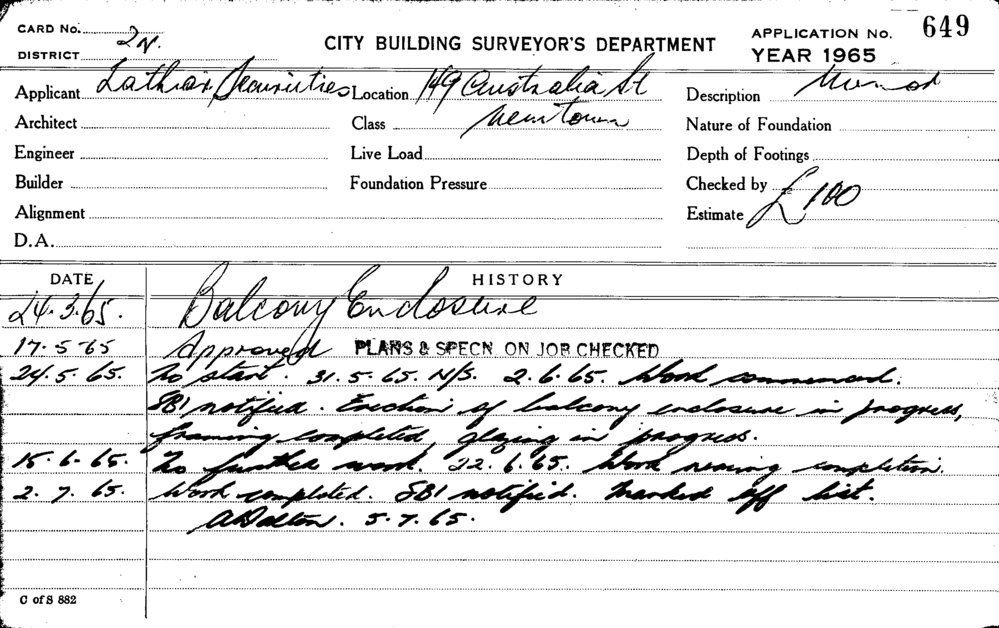 CARD No.
DISTRICT 2N.
CITY BUILDING SURVEYOR'S DEPARTMENT
APPLICATION No. 649
YEAR 1965
Applicant Securities Location 149 Australia St Description
Architect Class Newtown Nature of Foundation
Engineer Live Load Depth of Footings
Builder Foundation Pressure Checked by
Alignment Estimate £100
D.A.
DATE HISTORY
24.3.65. Balcony Enclosure
17-5-65 Approved PLANS & SPECN. ON JOB CHECKED
24.5.65. No start. 31.5.65. N/S. 2.6.65. Work commenced.
SBI notified. Erection of balcony enclosure in progress,
framing completed, glazing in progress.
15.6.65. No further work. 22.6.65. Work nearing completion.
2.7.65. Work completed. SBI notified. Marked off list.
A Dalton. 5.7.65.
C of S 882